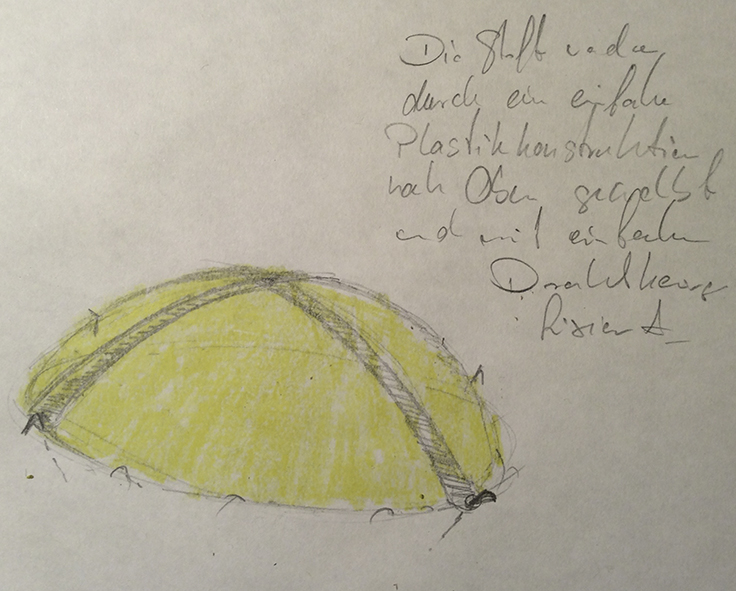 Die Stoffe werden
durch ein einfache
Plastikkonstruktion
nach Oben gewölbt
und mit einfachen
fixiert